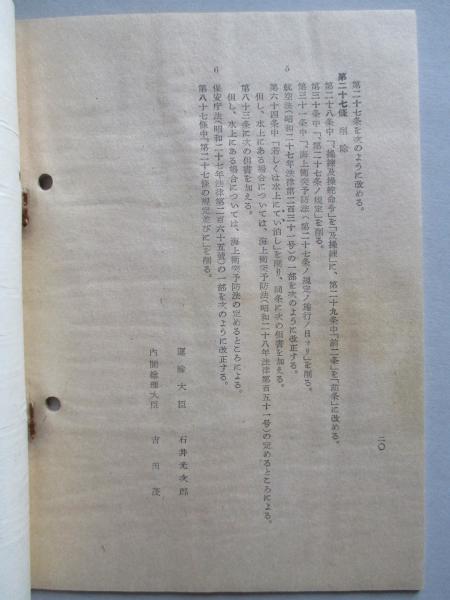 第二十七条を次のように改める。
第二十七條 削除
第二十八条中「、操練及操舵命令」を「及操練」に、第二十九条中「前二条」を「前条」に改める。
第三十条中「、第二十七条ノ規定」を削る。
第三十一条中「、海上衝突予防法（第二十七条ノ規定ノ施行ノ日ヨリ」を削る。
5
航空法（昭和二十七年法律第二百三十一号）の一部を次のように改正する。
第六十四条中「若しくは水上にてい泊し」を削り、同条に次の但書を加える。
但し、水上にある場合については、海上衝突予防法（昭和二十八年法律第百五十一号）の定めるところによる。
第八十三条に次の但書を加える。
但し、水上にある場合については、海上衝突予防法の定めるところによる。
6
保安庁法（昭和二十七年法律第二百六十五號）の一部を次のように改正する。
第八十七條中「第二十七條の規定並びに」を削る。
運輸大臣 石井光次郎
内閣総理大臣 吉田茂
二〇